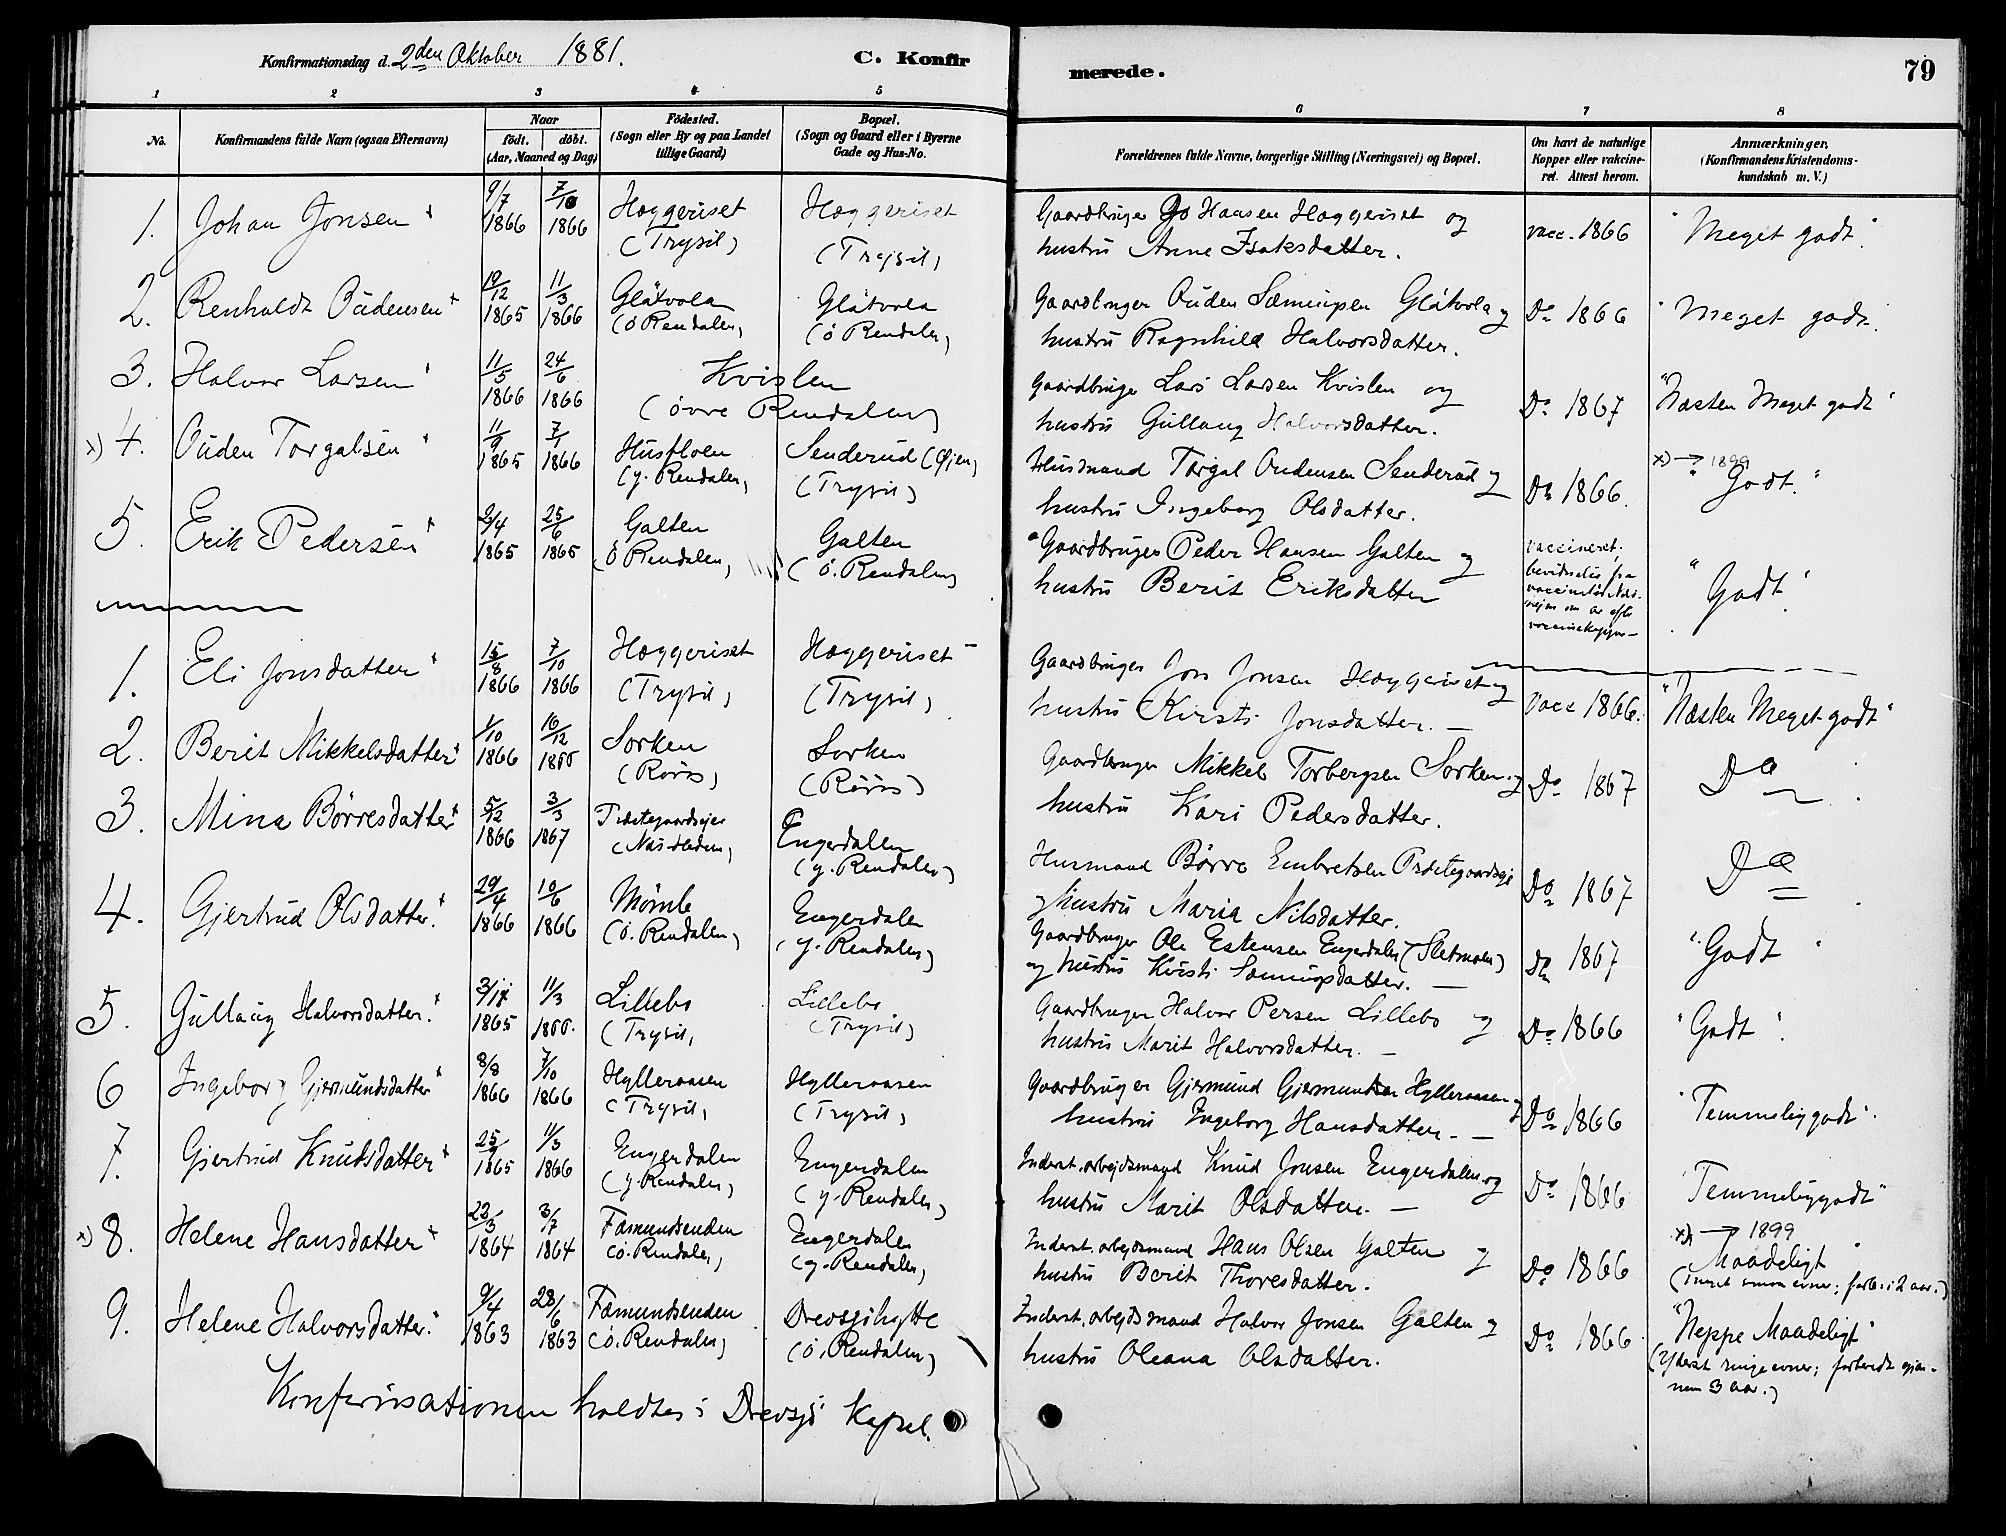 Konfirmationsdag d. 2den Oktober 1881.
C. Konfirmerede.
79
1 2 3 4 5 6 7 8
No.
Konfirmandens fulde Navn (ogsaa Efternavn)
Naar
födt. döbt.
(Aar, Maaned og Dag)
Födested.
(Sogn eller By og paa Landet
tillige Gaard)
Bopæl.
(Sogn og Gaard eller i Byerne
Gade og Hus-No.
Forældrenes fulde Navne, borgerlige Stilling (Næringsvei) og Bopæl.
Om havt de naturlige
Kopper eller vakcine-
ret. Attest herom.
Anmærkninger.
(Konfirmandens Kristendoms-
kundskab m. V.)
1. Johan Jonsen 9/7 1866 7/10 1866 Hæggeriset (Trysil) Hæggeriset (Trysil) Gaardbruger Jo Hansen Hæggeriset og
hustru Anne Isaksdatter. vacc. 1866 "Meget godt".
2. Renholdt Oudensen 19/12 1865 11/3 1866 Glåtvola (ö Rendalen) Glåtvola (ö Rendalen) Gaardbruger Ouden Sæmingsen Glåtvola og
hustru Ragnhild Halvorsdatter. Do 1866 "Meget godt".
3. Halvor Larsen 11/5 1866 24/6 1866 Kvislen (övre Rendalen) Gaardbruger Lars Larsen Kvislen og
hustru Gullaug Halvorsdatter. Do 1867 "Næsten Meget godt"
x) 4. Ouden Torgalsen 11/9 1865 7/1 1866 Husfloen (y. Rendalen) Senderud (Øien) (Trysil) Husmand Torgal Oudensen Senderud og
hustru Ingeborg Olsdatter. Do 1866. x) → 1899 "Godt."
5. Erik Pedersen 2/4 1865 25/6 1865 Galten (Ö Rendalen) Galten (ö. Rendalen) Gaardbruger Peder Hansen Galten og
hustru Berit Eriksdatter vaccineret. "Godt".
1. Eli Jonsdatter 15/8 1866 7/10 1866 Hæggeriset (Trysil) Hæggeriset (Trysil) Gaardbruger Jon Jonsen Hæggeriset og
hustru Kirsti Jonsdatter. — Vacc 1866. "Næsten Meget godt"
2. Berit Mikkelsdatter 1/10 1866 16/12 1866 Sorken (Röros) Sorken (Röros) Gaardbruger Mikkel Torbergsen Sorken og
hustru Kari Pedersdatter. Do 1867 Do
3. Mina Börresdatter 5/12 1866 3/3 1867 Prestegaardseje (Näs-Hedem.) Engerdalen (y. Rendalen) Husmand Börre Embretsen Prestegaardseje
og hustru Maria Nilsdatter. Do 1867 Do
4. Gjertrud Olsdatter. 29/4 1866 10/6 1866 (ö. Rendalen) Engerdalen (y. Rendalen) Gaardbruger Ole Estensen Engerdalen (Sletmoen)
og hustru Kirsti Sæmingsdatter. — Do 1867 "Godt"
5. Gullaug Halvorsdatter. 3/11 1865 11/3 1866. Lillebo (Trysil) Lillebo (Trysil) Gaardbruger Halvor Persen Lillebo og
hustru Marit Halvorsdatter. — Do 1866 "Godt".
6 Ingeborg Gjermundsdatter 8/8 1866 7/10 1866 Hylleraasen (Trysil) Hylleraasen (Trysil) Gaardbruger Gjermund Gjermundsen Hylleraasen og
hustru Ingeborg Hansdatter. — Do 1866 "Temmelig godt".
7. Gjertrud Knudsdatter 25/9 1865 11/3 1866 Engerdalen (y. Rendalen) Engerdalen (y. Rendalen) Inderst, arbejdsmand Knud Jonsen Engerdalen og
hustru Marit Olsdatter. — Do 1866 "Temmelig godt"
x) 8. Helene Hansdatter 22/3 1864 3/7 1864 Fæmundsenden (ö. Rendalen) Engerdalen (y. Rendalen) Inderst, arbejdsmand Hans Olsen Galten og
hustru Berit Thoresdatter. Do 1866 x) → 1899
"Maadeligt"
(meget smaa evner; forb. i 2 aar.)
9. Helene Halvorsdatter. 9/4 1863 28/6 1863 Fæmundsenden (ö. Rendalen) Drevsjöhytte (ö. Rendalen) Inderst, arbejdsmand Halvor Jonsen Galten og
hustru Oleana Olsdatter. Do 1866 "Neppe Maadeligt"
(Yderst ringe evner; forberedt gjen-
nem 3 aar.)
Konfirmationen holdtes i Drevsjö Kapel.